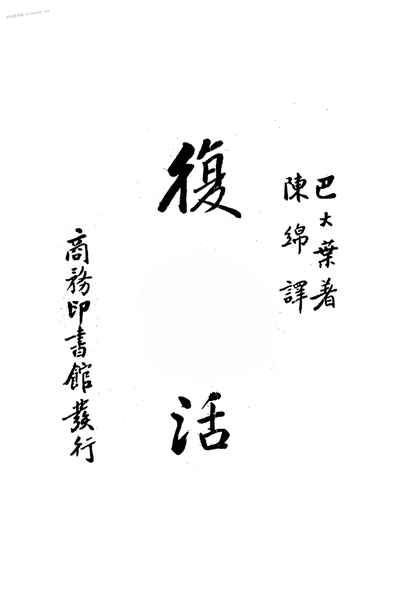 巴大葉著
陳綿譯
復活
商務印書館發行